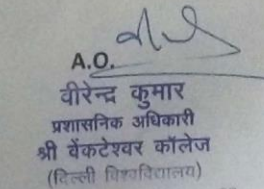 A.O.
वीरेन्द्र कुमार
प्रशासनिक अधिकारी
श्री वेंकटेश्वर कॉलेज
(दिल्ली विश्वविद्यालय)